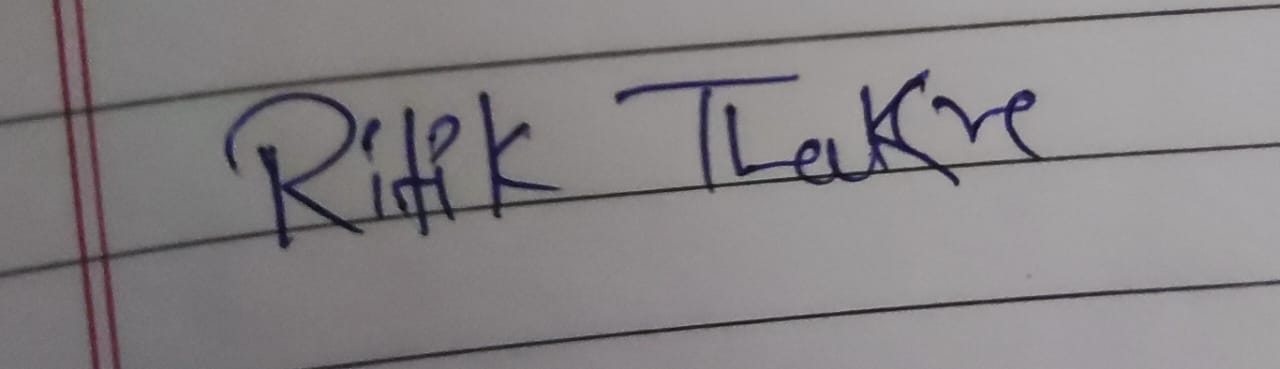 Ritik Thakre